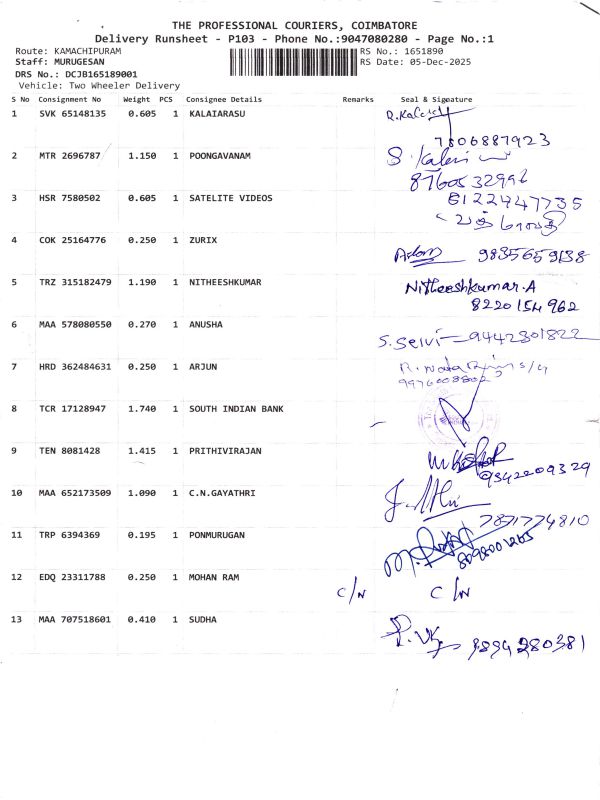 THE PROFESSIONAL COURIERS, COIMBATORE
Delivery Runsheet - P103 - Phone No.:9047080280 - Page No.:1
Route: KAMACHIPURAM RS No.: 1651890
Staff: MURUGESAN RS Date: 05-Dec-2025
DRS No.: DCJB165189001
Vehicle: Two Wheeler Delivery
S No Consignment No Weight PCS Consignee Details Remarks Seal & Signature
1 SVK 65148135 0.605 1 KALAIARASU
7806887923
2 MTR 2696787 1.150 1 POONGAVANAM
8760532992
3 HSR 7580502 0.605 1 SATELITE VIDEOS 8122447735
4 COK 25164776 0.250 1 ZURIX
9835659138
5 TRZ 315182479 1.190 1 NITHEESHKUMAR Nitheeshkumar.A
8220154962
6 MAA 578080550 0.270 1 ANUSHA
S. Selvi 9442301822
7 HRD 362484631 0.250 1 ARJUN
9976008802
8 TCR 17128947 1.740 1 SOUTH INDIAN BANK
9 TEN 8081428 1.415 1 PRITHIVIRAJAN
9342209329
10 MAA 652173509 1.090 1 C.N.GAYATHRI
7871774810
11 TRP 6394369 0.195 1 PONMURUGAN
8098001265
12 EDQ 23311788 0.250 1 MOHAN RAM
C/N C/N
13 MAA 707518601 0.410 1 SUDHA
9894280381